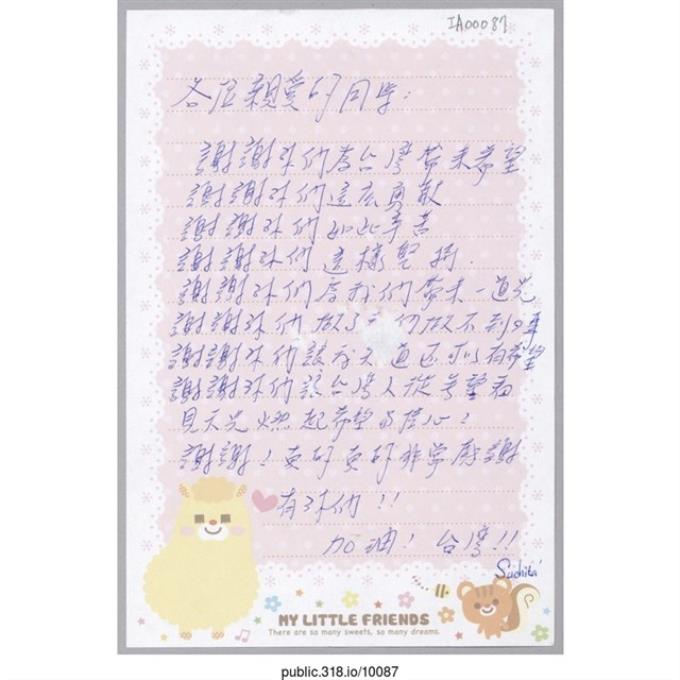 IA00087
各位親愛的同学:
謝謝你們為台灣帶來希望
謝謝你們這庅勇敢
謝謝你們如此辛苦
謝謝你們這樣堅持.
謝謝你們為我們帶來一道光
謝謝你們做了我們做不到的事
謝謝你們讓我知道还可以有希望
謝謝你們讓台灣人從絕望看
見天光燃起希望的信心!
謝謝!真的真的非常感謝
有你們!!
加油!台灣!!
Suchita
MY LITTLE FRIENDS
There are so many sweets, so many dreams.
public.318.io/10087